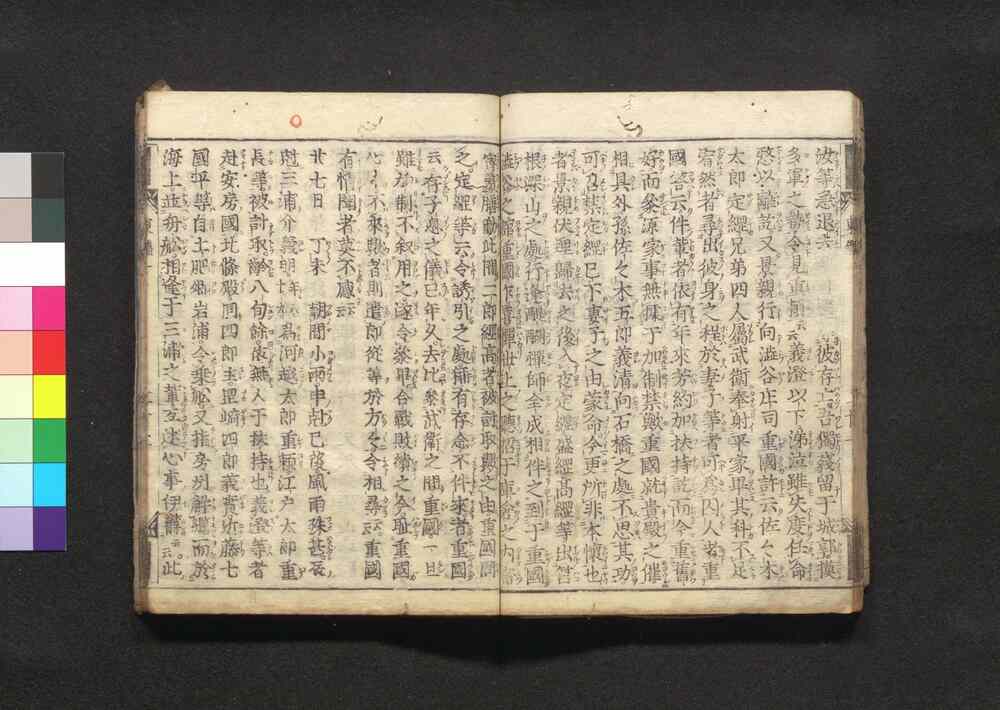 彼等急退去 彼存亡吾獨殘留于城郭摸
多軍之勢令見重賴云云義澄以下涕泣雖失度任命
憖以離散訖又景親行向澁谷庄司重國許云佐々木
太郎定經兄弟四人屬武衛奉射平家畢其科不足
宥然者尋出彼身之程於妻子等者可爲囚人者重
國答云件輩者依有年來芳約加扶持訖而今重舊
好而參源家事無據于加制禁歟重國就貴殿之催
相具外孫佐々木五郎義清向石橋之處不思其功
可召禁定經已下妻子之由蒙命今更所非本懷也
者景親伏理歸去之後入夜定經盛經高經等出筥
根深山之處行逢醍醐禪師全成相伴之到于重國
澁谷之舘重國乍喜憚世上之聽招于庫倉之内
密羞膳勸此間二郎經高者被討取歟之由重國問
之定經等云令誘引之處稱有存念不伴來者重國
云存子息之儀已年久去比參武衛之間重國一旦
雖加制不叙用之遂令參畢合戰敗績之今耻重國
心中不來歟者則遣郎從等於方々令相尋云云重國
有情聞者莫不感云云
廿七日 丁未 朝間小雨申尅已後風雨殊甚辰
尅三浦介義明 爲河越太郎重賴江戸太郎重
長等被討取齡八旬餘依無人于扶持也義澄等者
赴安房國北條殿同四郎主岡崎四郎義實近藤七
國平等自土肥郷岩浦令乗舩又指房州解纜而於
海上並舟舩相逢于三浦之輩互述心事伊欝云云此